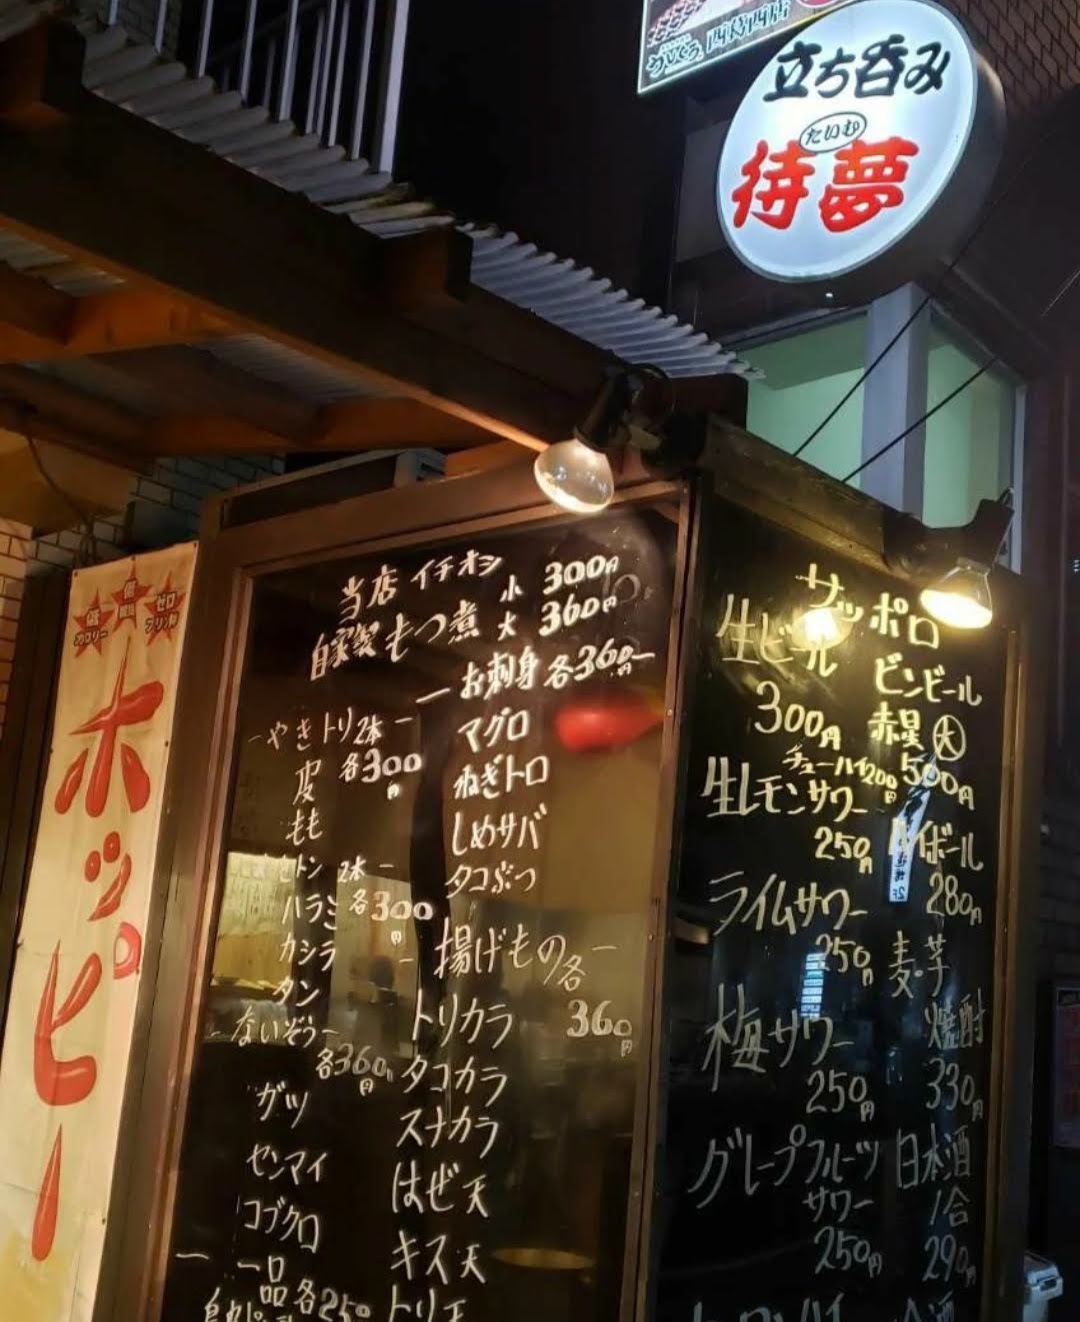 西葛西店
立ち呑み
たいむ
待夢
低
カロリー
低
糖質
ゼロ
プリン体
ホッピー
当店イチオシ
自家製もつ煮
小 300円
大 360円
ーお刺身 各360円ー
マグロ
ねぎトロ
しめサバ
タコぶつ
ーやきトリ2本ー
各300円
皮
もも
セトン 2本ー
各300円
ハラミ
カシラ
タン
ーないぞうー
各360円
ガツ
センマイ
コブクロ
ー揚げもの各ー
360円
トリカラ
タコカラ
スナカラ
はぜ天
キス天
トリ天
ー一品
各250
サッポロ
生ビール
300円
ビンビール
赤星 大
500円
チューハイ200円
生レモンサワー
250円
ハイボール
280円
ライムサワー
250円
麦・芋
焼酎
330円
梅サワー
250円
グレープフルーツ
サワー
250円
日本酒
1合
290円